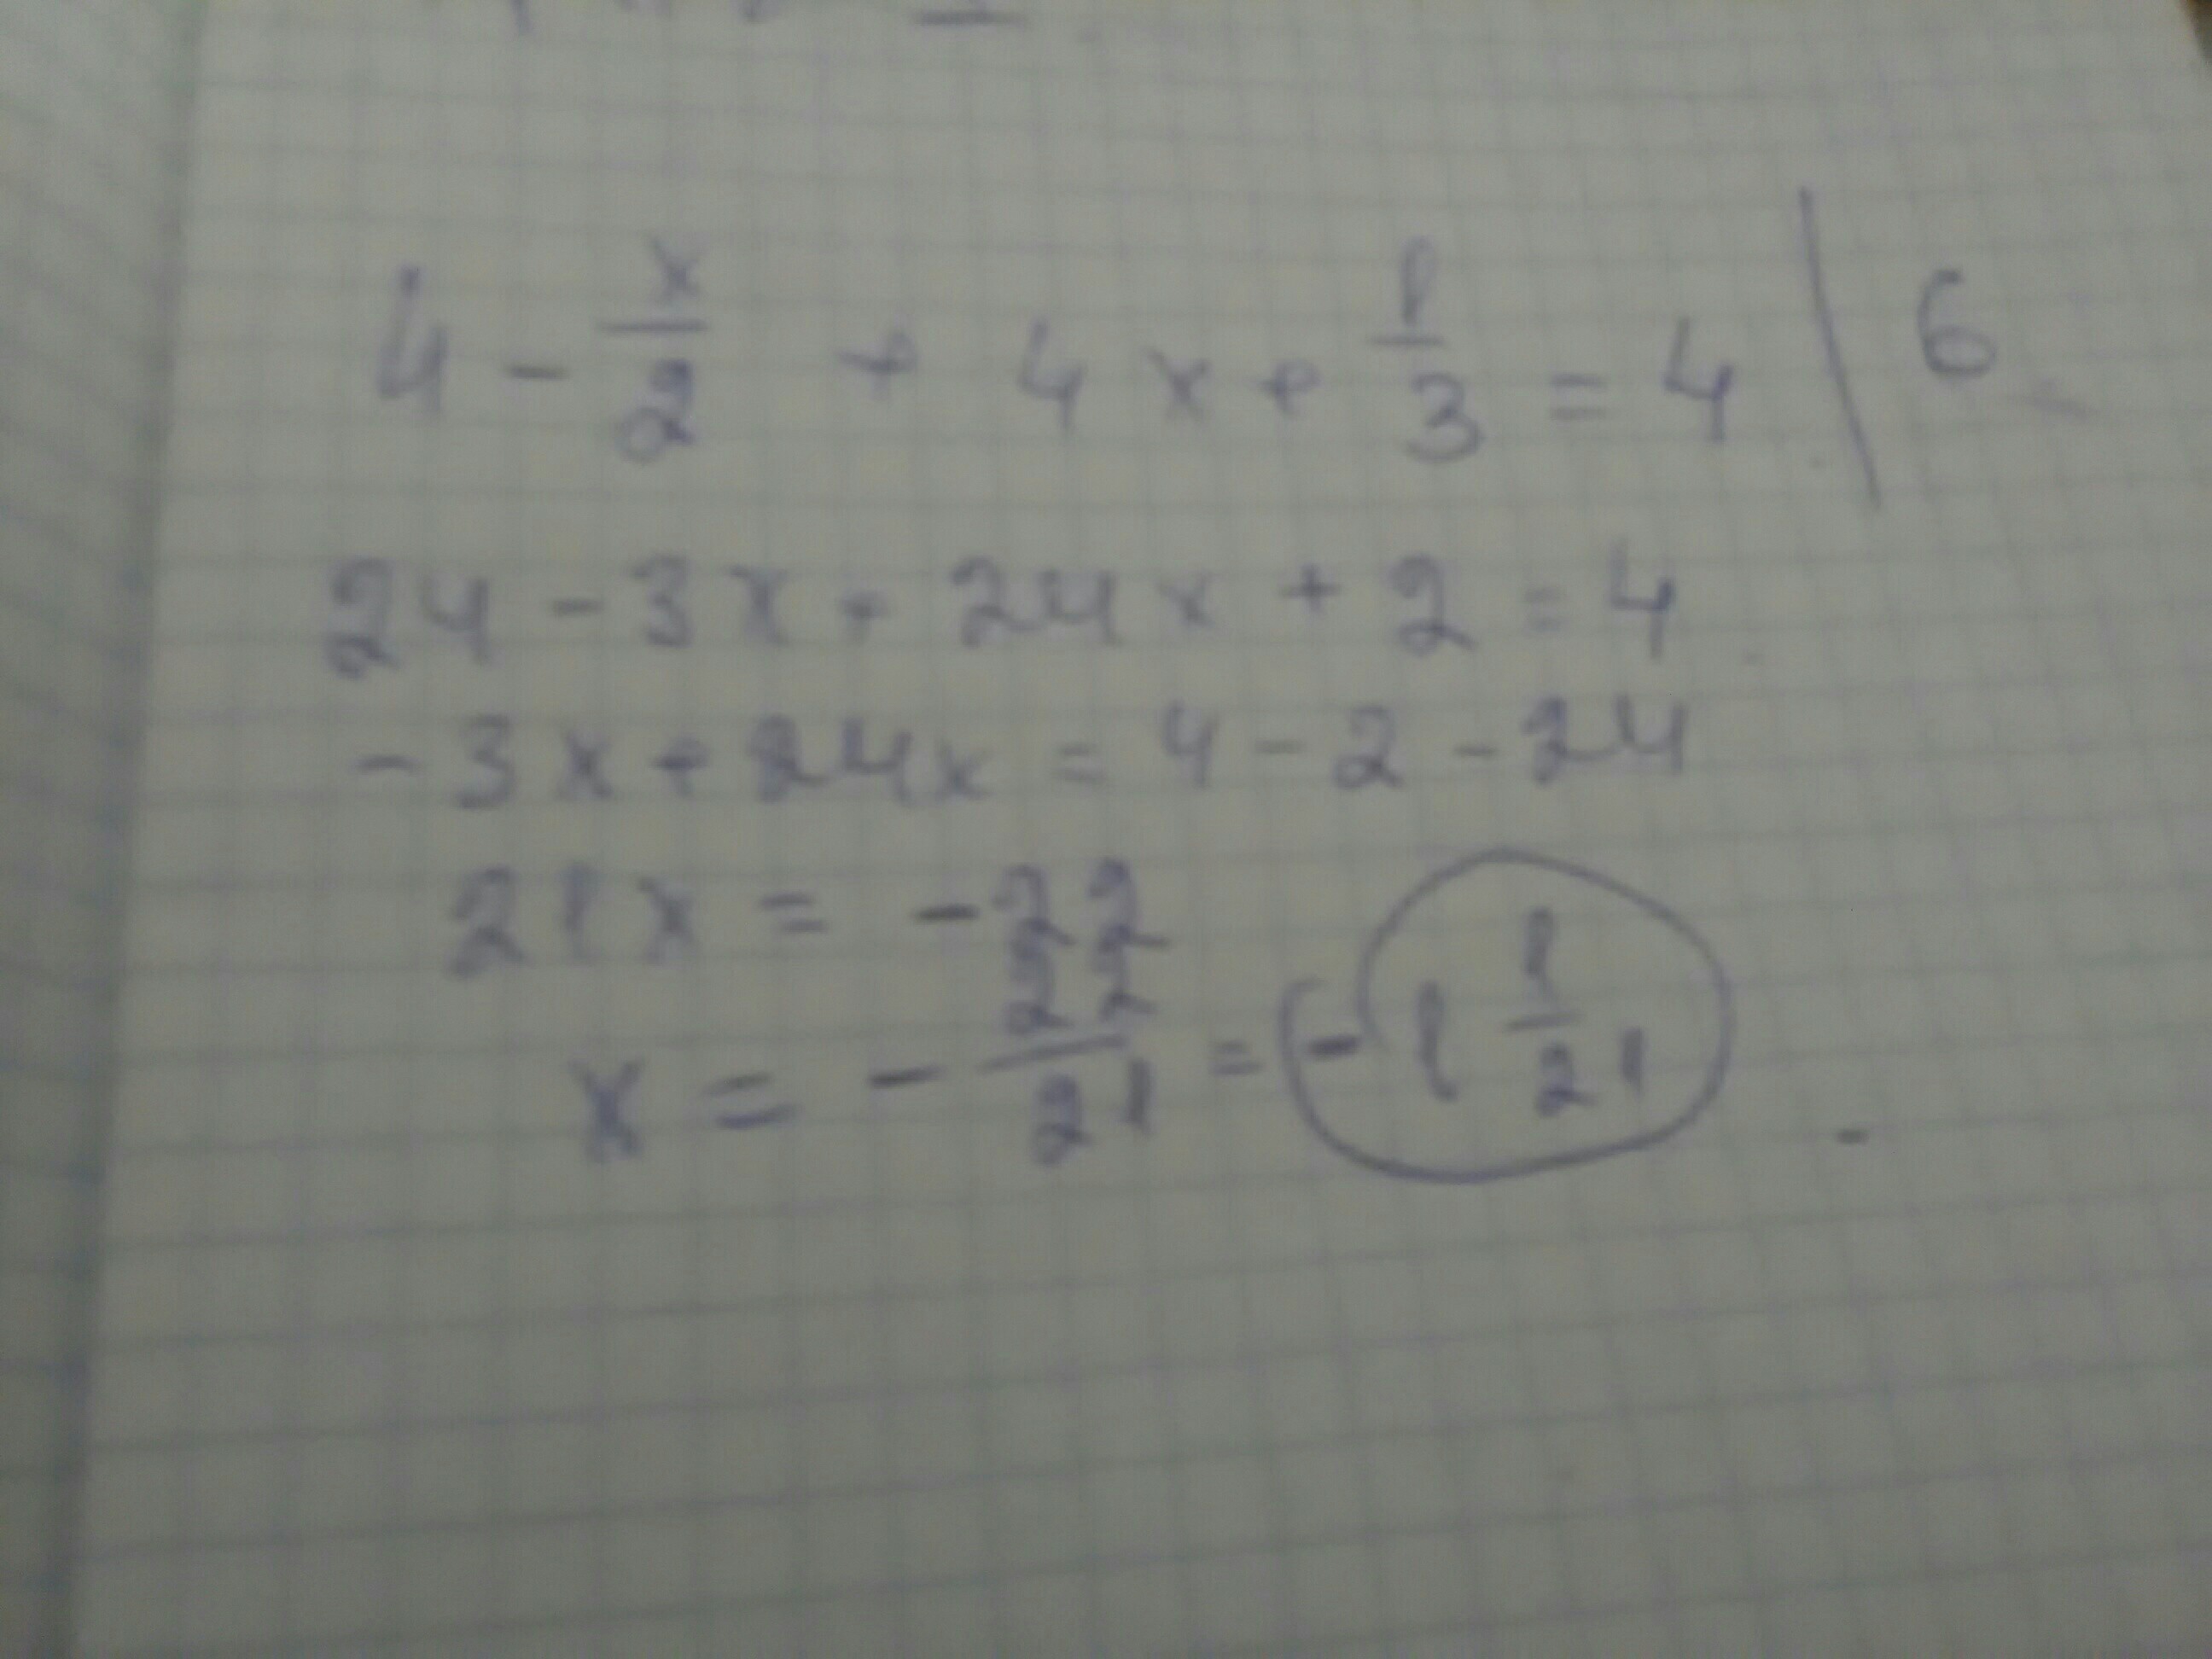 4 - x/2 + 4x + 1/3 = 4 | 6
24 - 3x + 24x + 2 = 4
-3x + 24x = 4 - 2 - 24
21x = -22
x = - 22/21 = - 1 1/21